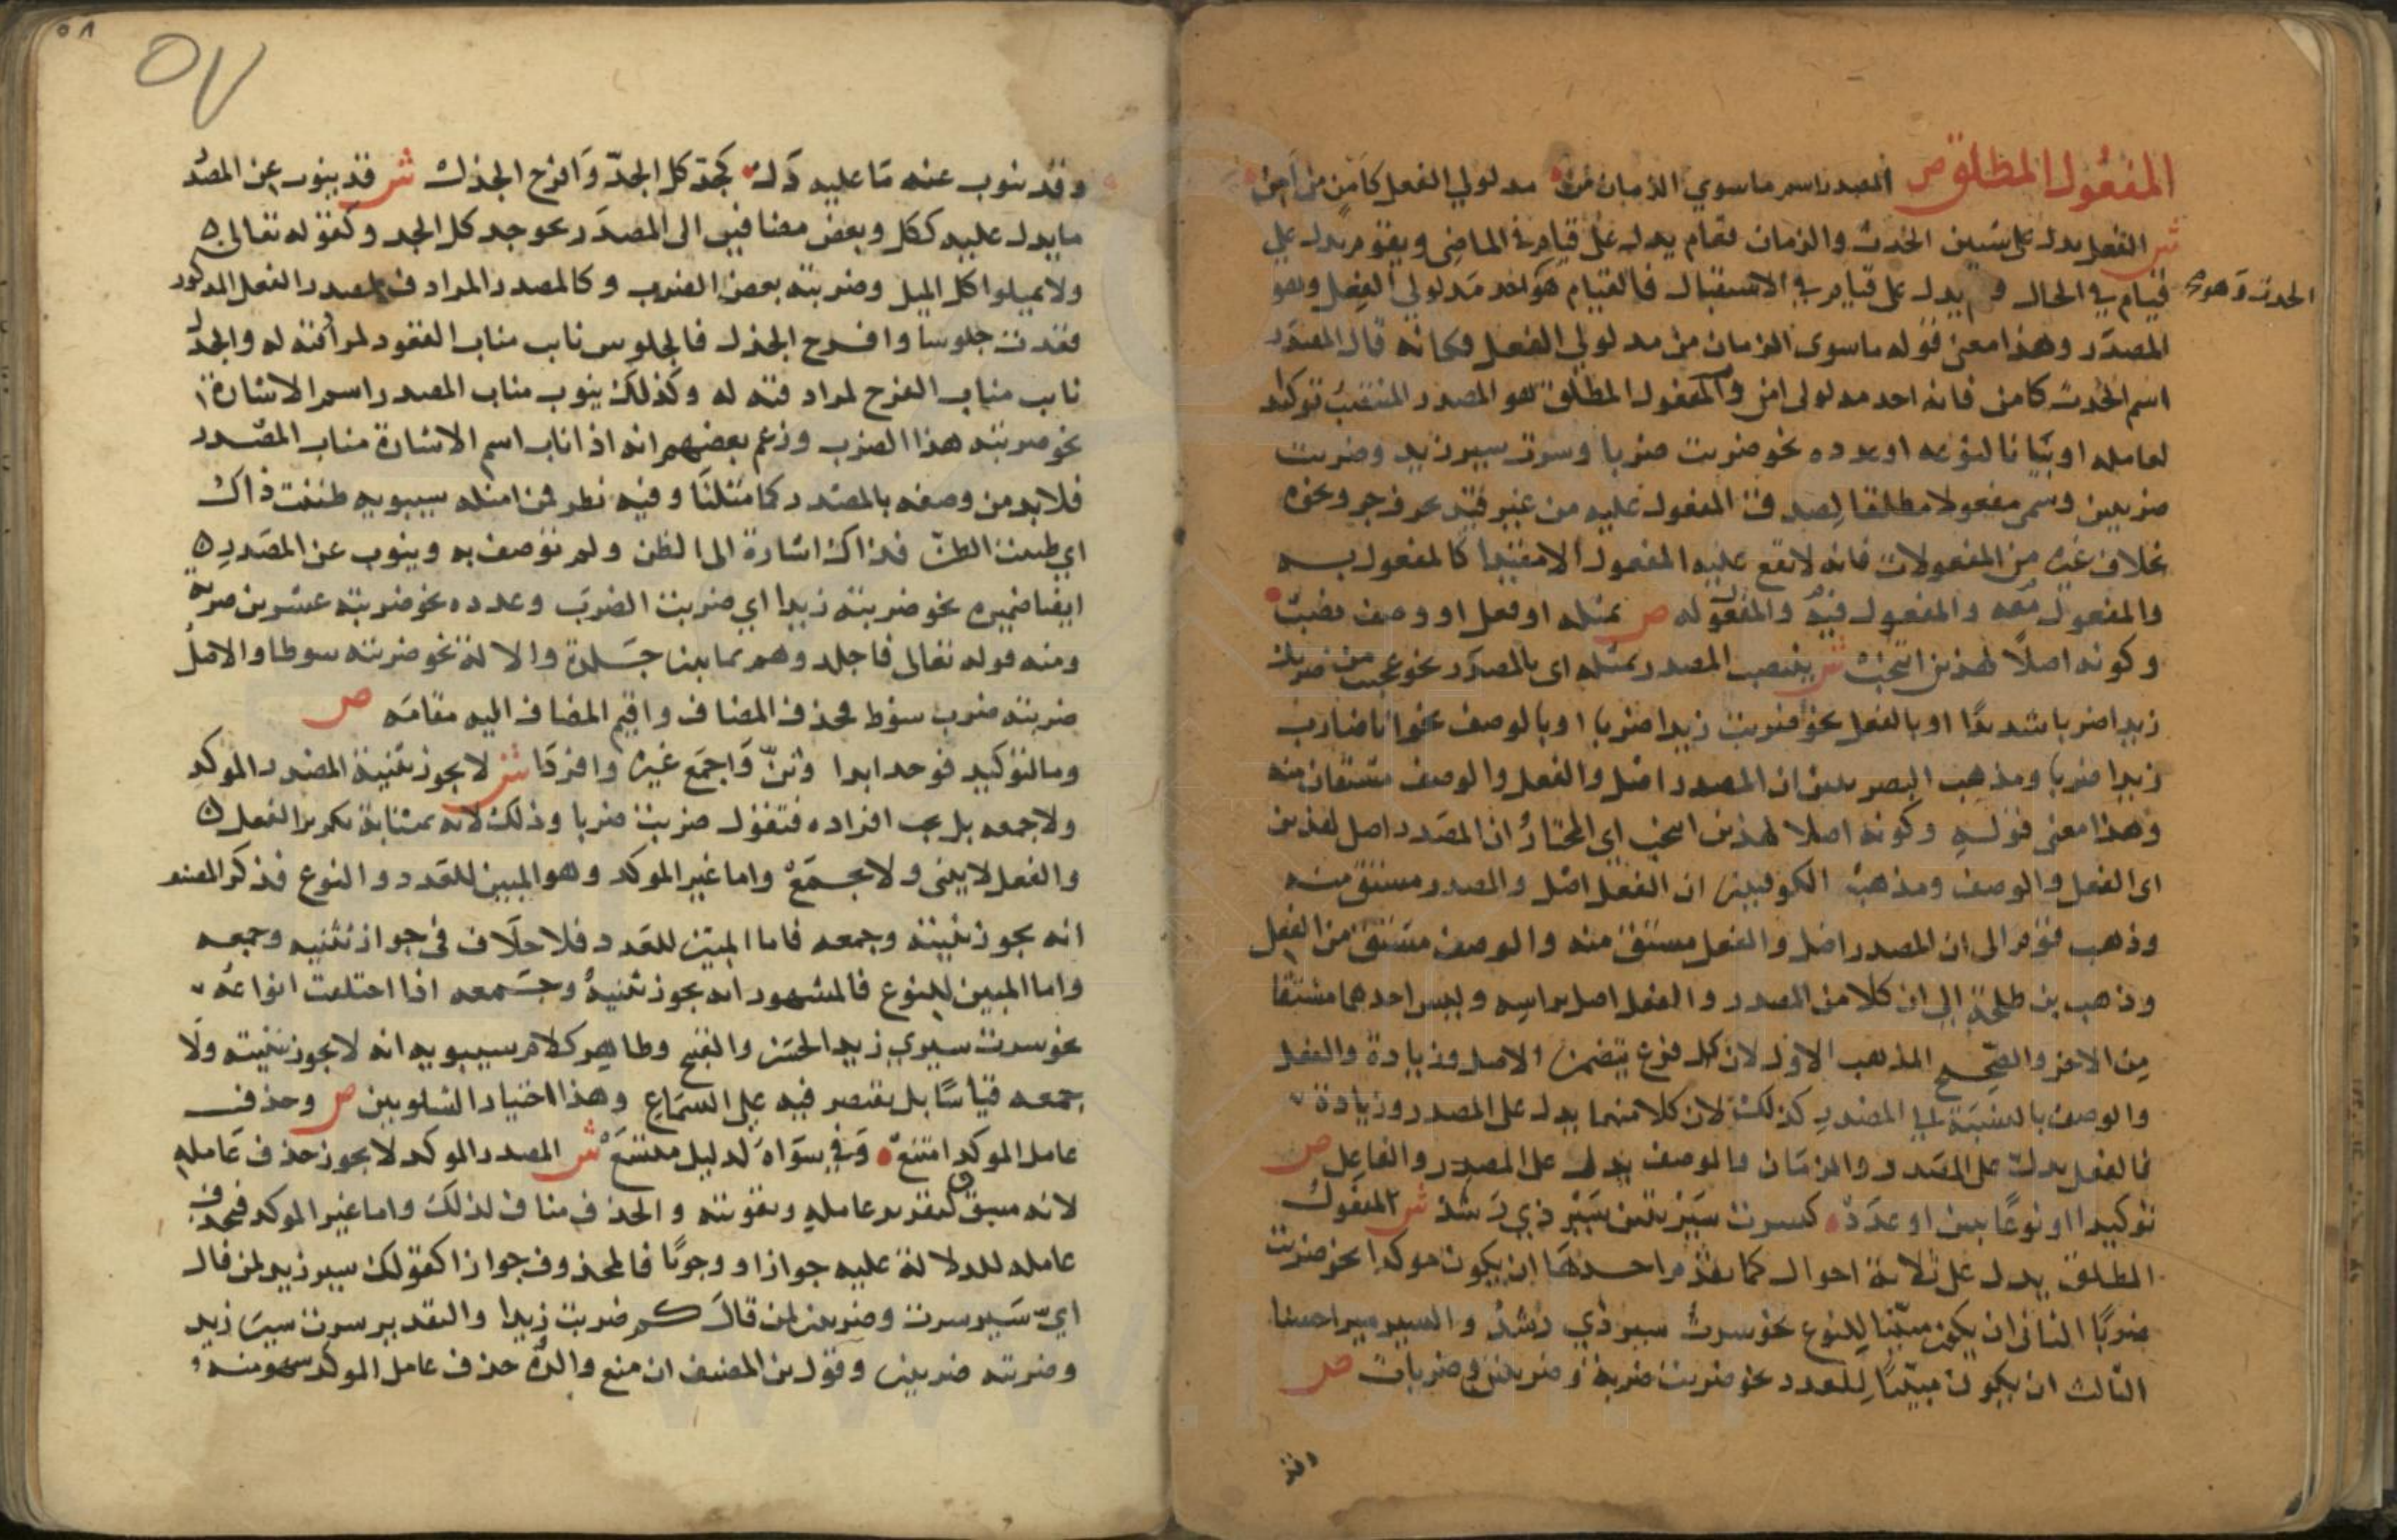 المفعول المطلق ص المصدر اسم ما سوي الزمان من مدلولي الفعل كامن من امن
ش الفعل يدل على شيئين الحدث والزمان فقام يدل على قيام في الماضي ويقوم يدل على
قيام في الحال و يدل على قيام في الاستقبال فالقيام هو احد مدلولي الفعل وهو
الحدث وهو
المصدر وهذا معنى قوله ما سوى الزمان من مدلولي الفعل فكانه قال المصدر
اسم الحدث كامن فانه احد مدلولى امن والمفعول المطلق هو المصدر المنتصب توكيدا
لعامله او بيانا لنوعه او عدده نحو ضربت ضربا وسرت سير زيد وضربت
ضربتين وسمى مفعولا مطلقا لصدق المفعول عليه من غير قيد بحرف جر ونحوه
بخلاف غيره من المفعولات فانه لا يقع عليه المفعول الا مقيدا كالمفعول به
والمفعول معه والمفعول فيه والمفعول له ص بمثله او فعل او وصف نصب
وكونه اصلا لهذين انتخب ش ينتصب المصدر بمثله اى بالمصدر نحو عجبت من ضربك
زيدا ضربا شديدا او بالفعل نحو ضربت زيدا ضربا او بالوصف نحو انا ضارب
زيدا ضربا ومذهب البصريين ان المصدر اصل والفعل والوصف مشتقان منه
وهذا معنى قوله وكونه اصلا لهذين انتخب اى المختار ان المصدر اصل لهذين
اى الفعل والوصف ومذهب الكوفيين ان الفعل اصل والمصدر مشتق منه
وذهب قوم الى ان المصدر اصل والفعل مشتق منه والوصف مشتق من الفعل
وذهب بن طلحة الى ان كلا من المصدر والفعل اصل براسه وليس احدهما مشتقا
من الاخر والصحيح المذهب الاول لان كل فرع يتضمن الاصل وزيادة والفعل
والوصف بالنسبة الى المصدر كذلك لان كلا منهما يدل على المصدر وزيادة
فالفعل يدل على المصدر والزمان والوصف يدل على المصدر والفاعل ص
توكيدا او نوعا يبين او عدد كسرت سيرتين سير ذي رشد ش المفعول
المطلق يدل على ثلاثة احوال كما تقدم احدها ان يكون موكدا نحو ضربت
ضربا الثانى ان يكون مبينا للنوع نحو سرت سير ذي رشد والسير سيرا حسنا
الثالث ان يكون مبينا للعدد نحو ضربت ضربة وضربتين وضربات ص
وقد
٥٨
٥٧
وقد ينوب عنه ما عليه دل كجد كل الجد وافرح الجذل ش قد ينوب عن المصدر
ما يدل عليه ككل وبعض مضافين الى المصدر نحو جد كل الجد وكقوله تعالى
ولا تميلوا كل الميل وضربته بعض الضرب وكالمصدر المرادف لمصدر الفعل المذكور
قعدت جلوسا وافرح الجذل فالجلوس ناب مناب القعود لمرادفته له والجذل
ناب مناب الفرح لمرادفته له وكذلك ينوب مناب المصدر اسم الاشارة
نحو ضربته هذا الضرب وزعم بعضهم انه اذا ناب اسم الاشارة مناب المصدر
فلابد من وصفه بالمصدر كما مثلنا وفيه نظر فمن امثلة سيبويه ظننت ذاك
اي ظننت الظن فذاك اشارة الى الظن ولم توصف به وينوب عن المصدر
ايضا ضميره نحو ضربته زيدا اي ضربت الضرب وعدده نحو ضربته عشرين ضربة
ومنه قوله تعالى فاجلدوهم ثمانين جلدة والالة نحو ضربته سوطا والاصل
ضربته ضرب سوط فحذف المضاف واقيم المضاف اليه مقامه ص
وما لتوكيد فوحد ابدا وثن واجمع غيره وافردا ش لا يجوز تثنية المصدر الموكد
ولا جمعه بل يجب افراده فتقول ضربت ضربا وذلك لانه بمثابة تكرير الفعل
والفعل لا يثنى ولا يجمع واما غير الموكد وهو المبين للعدد والنوع فذكر المصنف
انه يجوز تثنيته وجمعه فاما المبين للعدد فلا خلاف في جواز تثنيه وجمعه
واما المبين للنوع فالمشهور انه يجوز تثنيه وجمعه اذا اختلفت انواعه
نحو سرت سيري زيد الحسن والقبيح وظاهر كلام سيبويه انه لا يجوز تثنيته ولا
جمعه قياسا بل يقتصر فيه على السماع وهذا اختيار الشلوبين ص وحذف
عامل الموكد امتنع وفي سواه لدليل متسع ش المصدر الموكد لا يجوز حذف عامله
لانه مسوق لتقرير عامله وتقويته والحذف مناف لذلك واما غير الموكد فيحذف
عامله للدلالة عليه جوازا ووجوبا فالمحذوف جوازا كقولك سير زيد لمن قال
اي سير سرت وضربتين لمن قال كم ضربت زيدا والتقدير سرت سير زيد
وضربته ضربتين وقول بن المصنف ان منع والده حذف عامل الموكد سهو منه